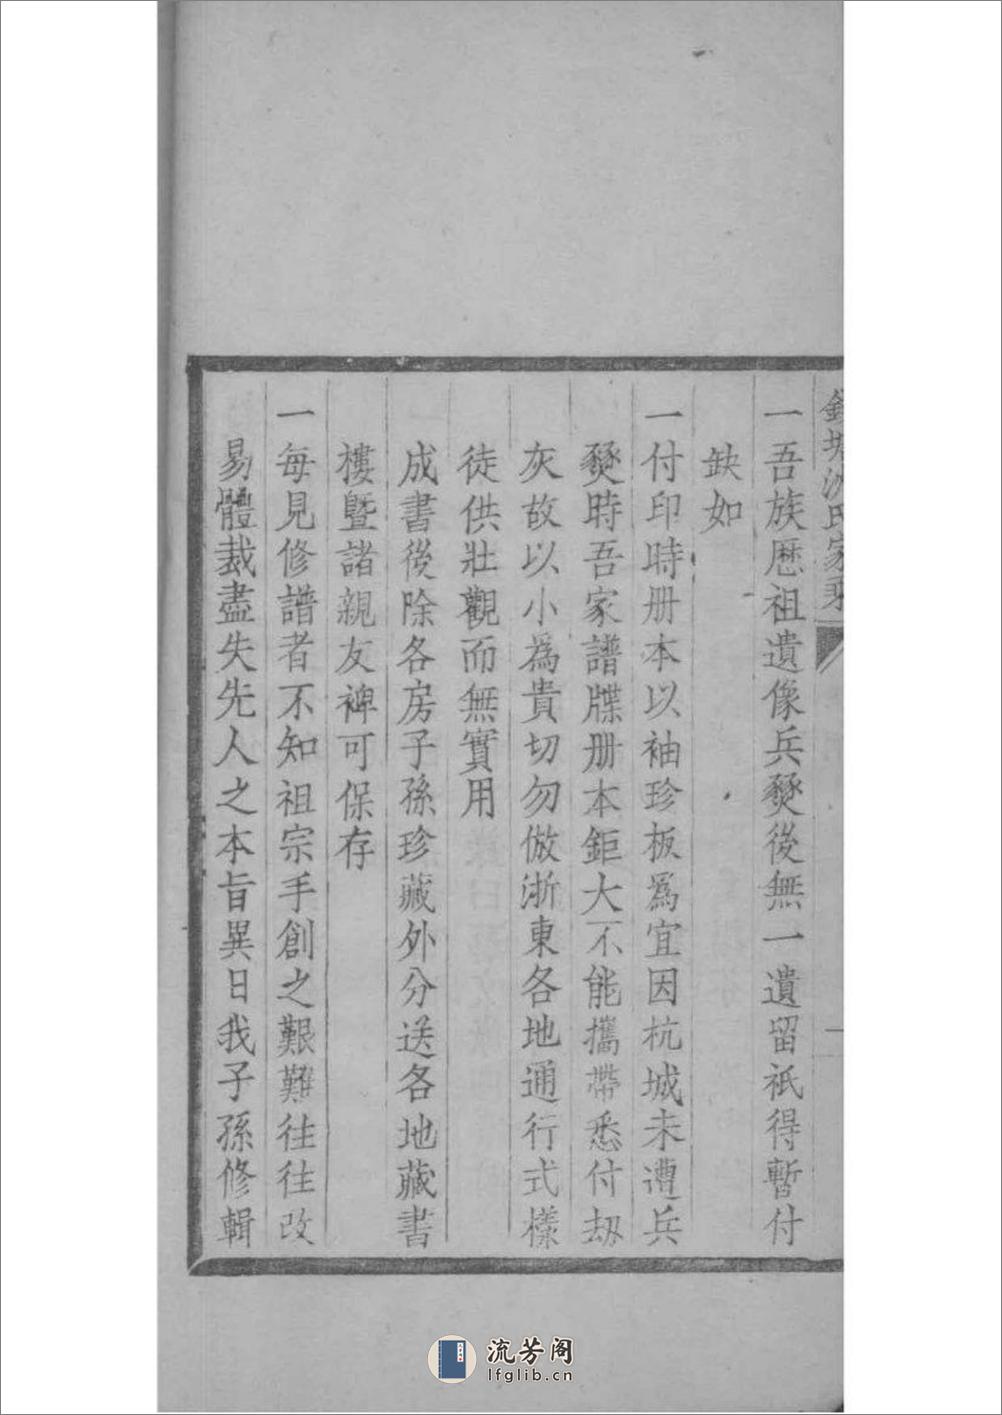 錢塘沈氏家乘
一吾族歷祖遺像兵燹後無一遺留祇得暫付
缺如
一付印時册本以袖珍板爲宜因杭城未遭兵
燹時吾家譜牒册本鉅大不能攜帶悉付刼
灰故以小爲貴切勿倣浙東各地通行式樣
徒供壯觀而無實用
成書後除各房子孫珍藏外分送各地藏書
樓暨諸親友裨可保存
一每見修譜者不知祖宗手創之艱難往往改
易體裁盡失先人之本旨異日我子孫修輯
流芳阁
lfglib.cn